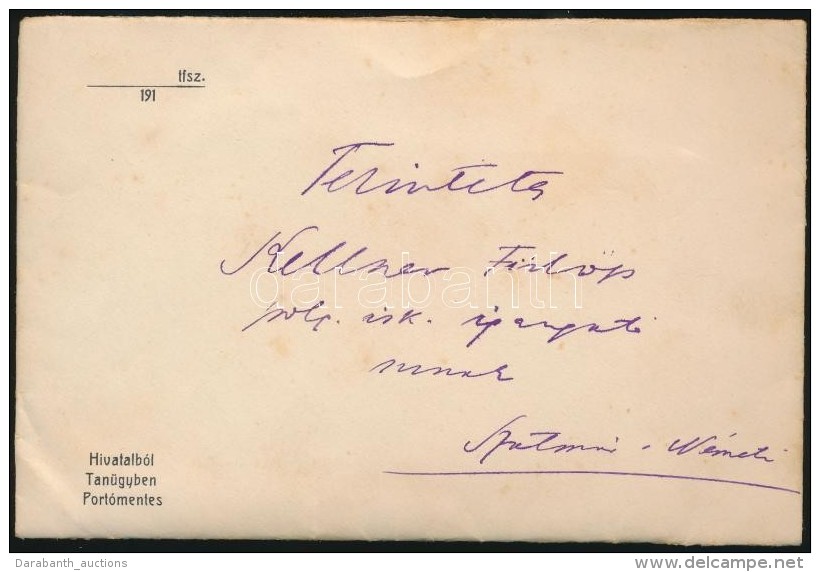 tfsz.
191
Tekintetes
Kellner Fülöp
polg. isk. igazgató
urnak
Szatmár-Németi
Hivatalból
Tanügyben
Portómentes
darabanth
Darabanth_auctions
delcampe.net